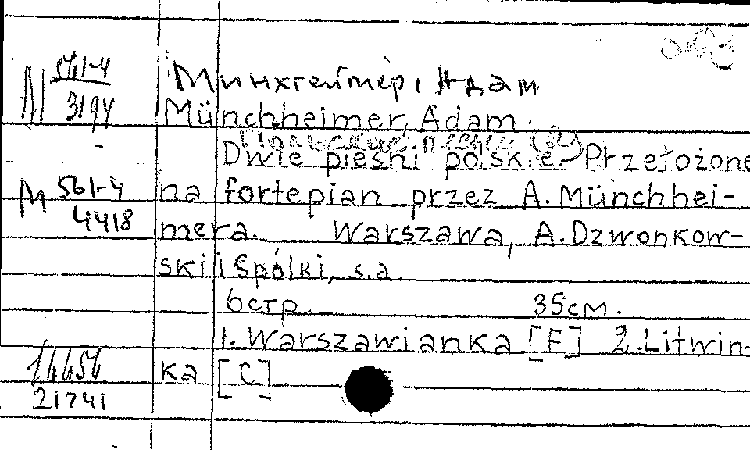 М 561-4
3194
Минхгеймер, Адам
Münchheimer, Adam.
Dwie pieśni polskie. Przełożone
М 561-4
4418
na fortepian przez A. Münchhei-
mera. Warszawa, A. Dzwonkow-
ski i Spólki, s.a.
6 стр. 35 см.
1. Warszawianka [F] 2. Litwin-
ka [C]
21741